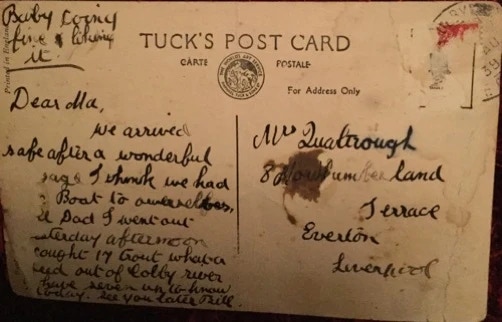 Baby Going
fine & liking
it.
Printed in England
TUCK'S POST CARD
CARTE POSTALE
For Address Only
39
Dear Ma,
we arrived
safe after a wonderful
sage I think we had
Boat to ourselves,
Dad I went out
terday afternoon
cought 17 trout
out of Colby river
have seven up to know
today. See you later Bill.
Mrs Qualtrough
8 land
Terrace
Everton
Liverpool